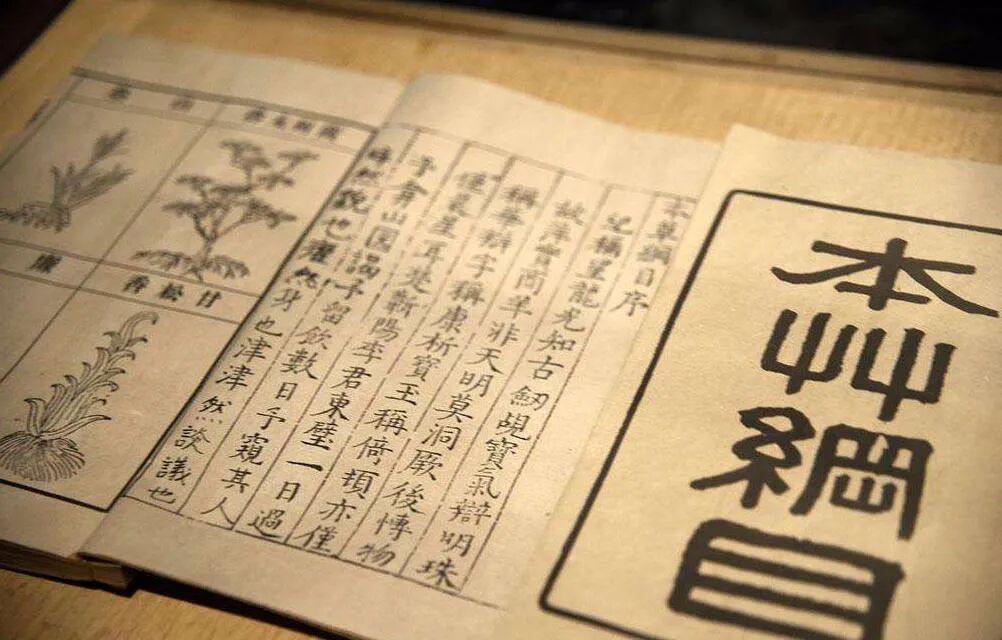 本艸綱目
本草綱目序
稱望龍光知古劒覘寶氣辯明珠
故萍實商羊非天明莫洞厥後愽物
稱華辯字稱康析寶玉稱倚頓亦僅
僅晨星耳楚蘄陽李君東璧一日過
予弇山園謁予留飲數日予窺其人
睟然貌也癯然身也津津然談議也
甘松香